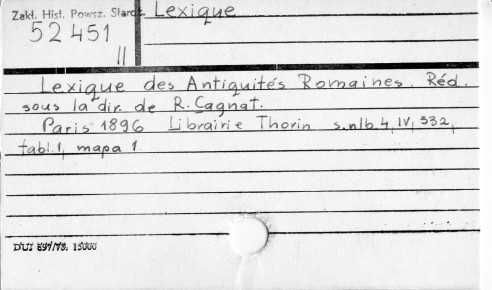 Zakł. Hist. Powsz. Staroż.
Lexique
52451
II
Lexique des Antiquités Romaines. Réd.
sous la dir. de R. Cagnat.
Paris 1896 Librairie Thorin s.nlb. 4, IV, 332,
tabl. 1, mapa 1.
DUJ 697/73. 15000